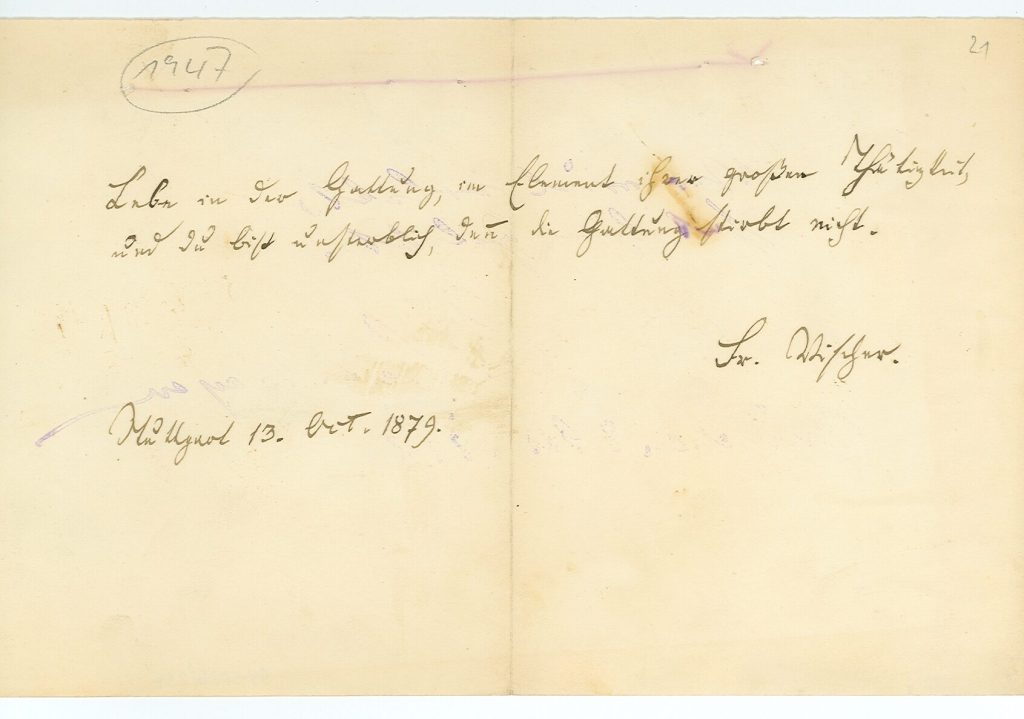 1947
21
Lebe in der Gattung, im Element ihrer großen Thätigkeit,
und du bist unsterblich, deñ die Gattung stirbt nicht.
Fr. Vischer.
Stuttgart 13. Oct. 1879.